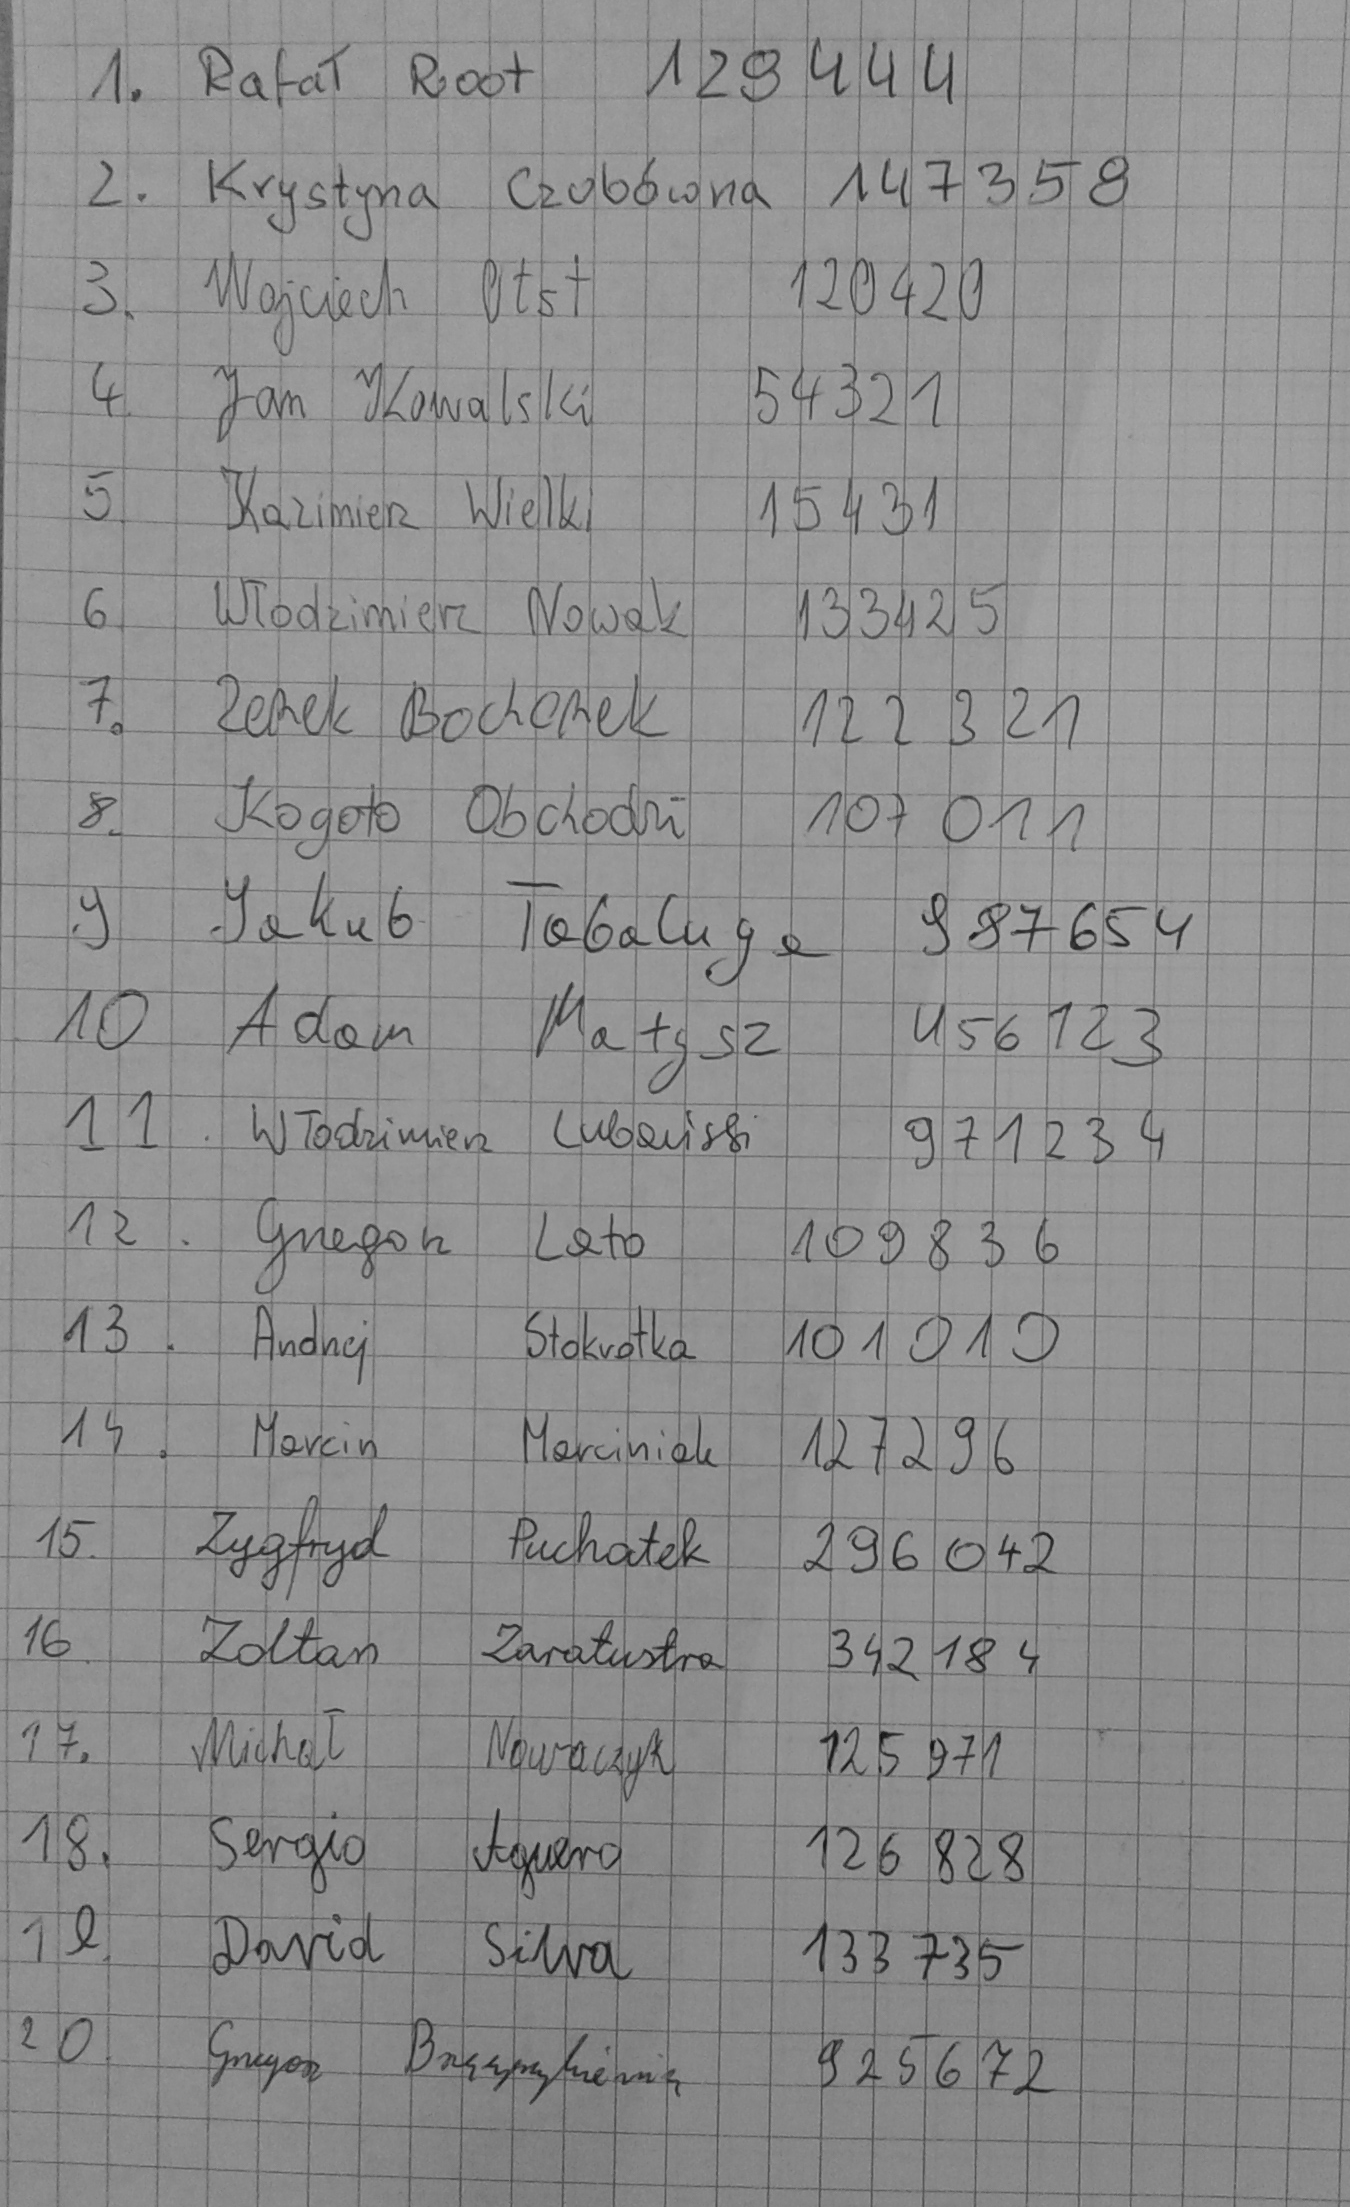 1. Rafał Root 129444
2. Krystyna Czubówna 147359
3. Wojciech Otst 120420
4. Jan Kowalski 54321
5 Kazimierz Wielki 15431
6 Włodzimierz Nowak 133425
7. Zenek Bochenek 122321
8. Kogoto Obchodzi 107011
9 Jakub Tabaluga 987654
10 Adam Małysz 456123
11. Włodzimierz 971234
12. Grzegorz Lato 109836
13. Andrzej Stokrotka 101010
14. Marcin Marciniak 127296
15. Zygfryd Puchatek 296042
16 Zoltan Zaratustra 342184
17. Michał Nowaczyk 125971
18. Sergio Aguero 126828
19. David Silva 133735
20. Grzegorz 925672